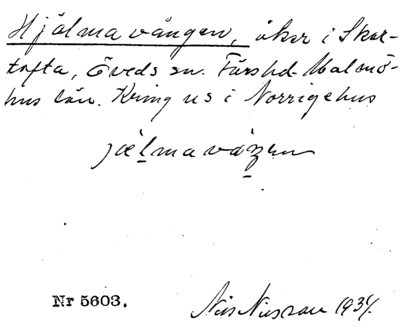 Hjälmavången, åker i Skar-
tofta, Öveds sn. Färs hd Malmö-
hus län. Kring us i Norrigehus
jælmavåʒen
Nr 5603.
Nils Nilsson 1934.